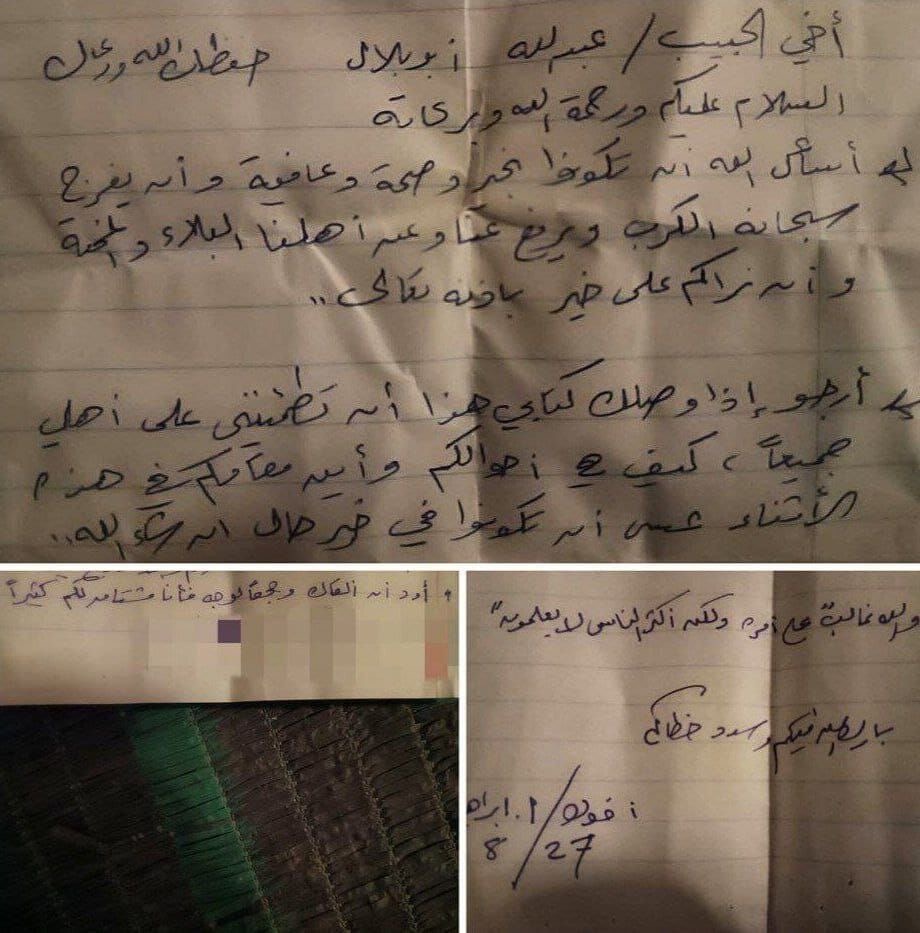 أخي الحبيب / عبدالله أبو بلال حفظك الله ورعاك
السلام عليكم ورحمة الله وبركاته
أسأل الله أن تكونوا بخير وصحة وعافية وأن يفرج
سبحانه الكرب ويرفع عنا وعن أهلنا البلاء والمحنة
وأن نراكم على خير بإذنه تعالى ..
أرجو إذا وصلك كتابي هذا أن تطمئنني على أهلي
جميعاً ، كيف هي أحوالكم وأين مقامكم في هذه
الأثناء عسى أن تكونوا في خير حال ان شاء الله ..
أود أن ألقاك وجهاً لوجه فأنا مشتاق لكم كثيراً
والله غالبٌ على أمره ولكن أكثر الناس لا يعلمون"
بارك الله فيكم وسدد خطاكم
أخوك / ا. ابراه
27 / 8